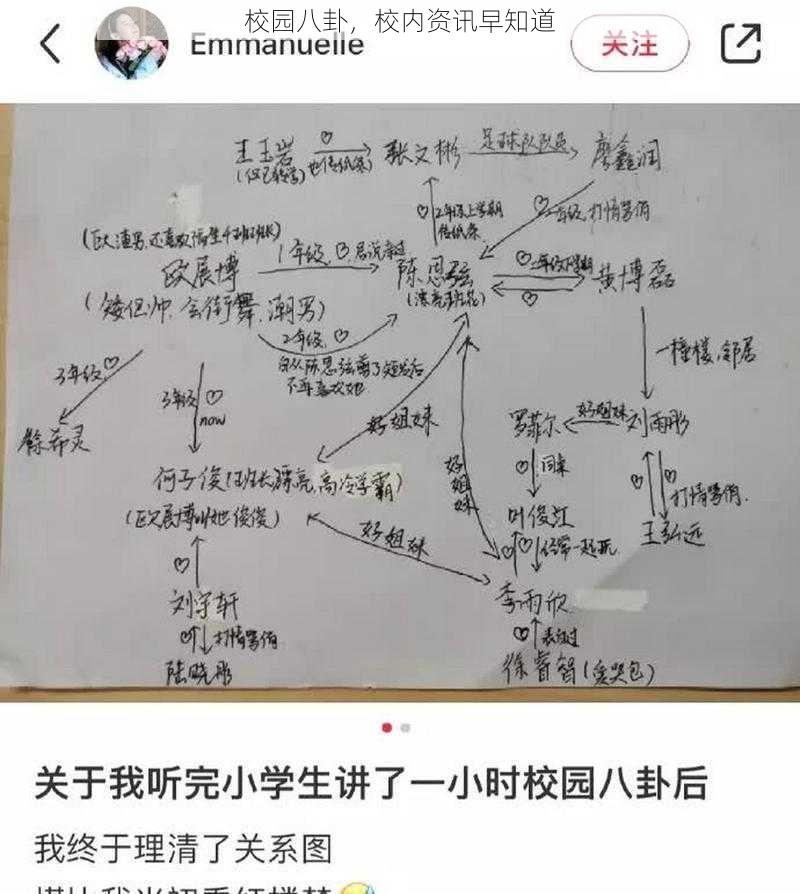 校园八卦，校内资讯早知道
Emmanuelle
关注
王玉岩
♡
张文彬
足球队队员
廖鑫润
♡
2年级上学期
传纸条
♡
2年级,打情骂俏
欧展博
1年级,♡
陈思弦
(漂亮班花)
♡
黄博磊
♡
(矮但帅,会街舞,潮男)
2年级,♡
自从陈思弦剪了短发后
不再喜欢她
一栋楼,邻居
3年级♡
徐希灵
3年级♡
now
好姐妹
罗菲尔
好姐妹
刘雨彤
何子俊(班长漂亮,高冷学霸)
(欧展博叫她俊俊)
好姐妹
♡同桌
♡
♡
打情骂俏.
叶俊江
王弘远
好姐妹
♡
♡经常一起玩
♡
李雨欣
刘宇轩
♡
打情骂俏
♡表白过
陆晓彤
徐睿智(爱哭包)
关于我听完小学生讲了一小时校园八卦后
我终于理清了关系图